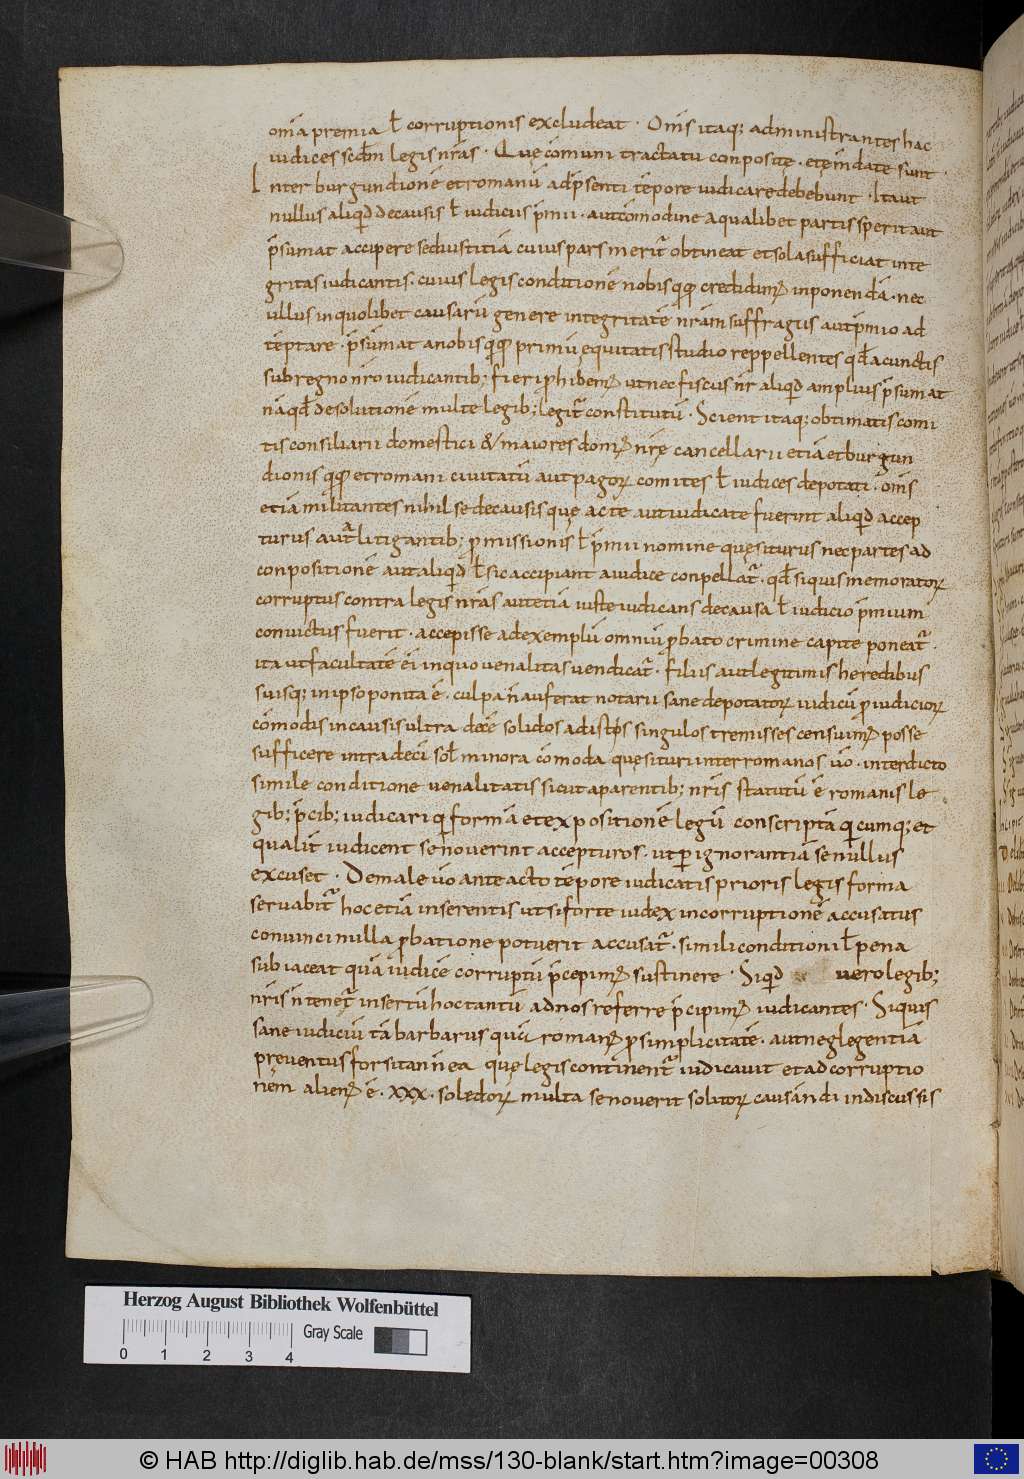 om̄ia premia ł corruptionis excludeat · Om̄s itaq; administrantes hac
iudices scd̄m legis nr̄as · Quę com̄uni tractatu conposite · et em̄date sunt ·
Inter burgundionē et romanū ad p̄senti tēpore iudicare debebunt · Ita ut
nullus aliqd̄ de causis ł iudicus p̄mii · aut cōmodi ne a qualibet partis sperit aut
p̄sumat accipere sed iustitiā cuius pars merit̄ obtineat et sola sufficiat inte
gritas iudicantis · cuius legis conditionē nobis qq̄ credidim; inponendā · nec
ullus in quolibet causarū genere integritatē nr̄am suffragiis aut p̄mio ad
tēptare · p̄sūmat a nobis qq̄ primū equitatis studio reppellentes qd̄ a cunctis
sub regno nr̄o iudicantib; fieri p̄hibem; ut nec fiscus nr̄ aliqd̄ amplius p̄sumat
nā qd̄ de solutionē multe legib; legit̄ constitutū · Scient itaq; obtimatis comi
tis consiliarii domestici & maiores dom; nr̄ę cancellarii etiā et burgun
dionis qq̄ et romani civitatū aut pagor̄ comites ł iudices depotati · om̄s
etiā militantes nihil se de causis que acte aut iudicate fuerint aliqd̄ accep
turus aut̄ litigantib; p̄missionis ł p̄mii nomine quęsiturus nec partes ad
conpositionē aut aliqd̄ ł sic accipiant a iudice conpellat̄ · qd̄ si quis memorator̄
corruptus contra legis nr̄as aut etiā iuste iudicans de causa ł iudicio p̄mium
convictus fuerit · accepisse ad exemplū omniū p̄bato crimine capite poneat̄ ·
ita ut facultatē ei in quo venalitas vendicat̄ · filiis aut legitimis heredibus
suisq; in ipso ponita ē · culpa n̄ auferat notarii sane depotator̄ iudicū p̄ iudicior̄
cōmodis in causis ultra decē solidos adistos singulos tremisses censuim; posse
sufficere intra deci sol̄ minora cōmoda quęsituri inter romanos ūo · interdicto
simile conditione venalitatis sicut a parentib; nr̄is statutū ē romanis le
gib; p̄cib; iudicari qi formā et expositionē legū conscriptā qi cumq; et
qualit̄ iudicent se noverint accepturos · ut p̄ ignorantiā se nullus
excuset · De male ūo ante acto tēpore iudicatis prioris legis forma
servabit̄ hoc etiā inserentis ut si forte iudex in corruptionē accusatus
convinci nulla p̄batione potuerit accusat̄ · simili conditioni ł pena
subiaceat quā iudicē corruptū p̄cepim; sustinere · Siqd̄ vero legib;
nr̄is n̄ tenet̄ insertū hoc tantū ad nos referre p̄cipim; iudicantes · Siquis
sane iudiciū tā barbarus quā roman; p̄ simplicitatē · aut neglegentiā
preventus forsitan n̄ ea quę legis continent̄ iudicavit et ad corruptio
nem alien; ē · xxx · soledor̄ multa se noverit solitor̄ causandi indiscussis
Herzog August Bibliothek Wolfenbüttel
Gray Scale
0 1 2 3 4
© HAB http://diglib.hab.de/mss/130-blank/start.htm?image=00308